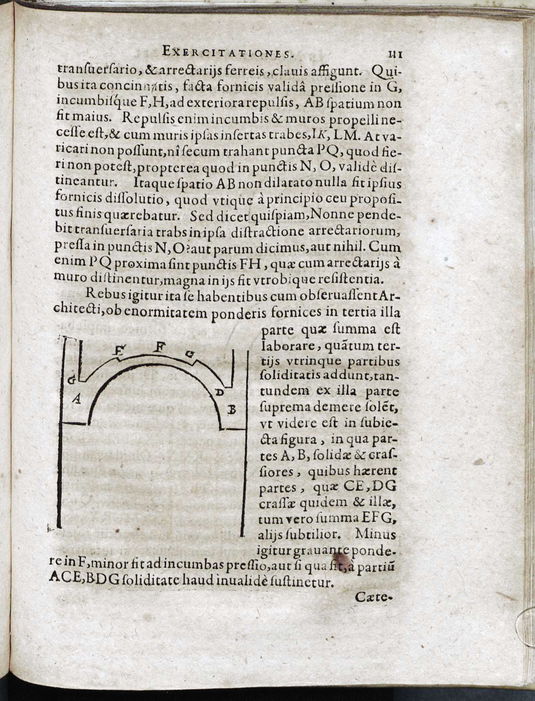 EXERCITATIONES. 111
tranſuerſario, & arrectarijs ferreis, clauis affigunt. Qui-
bus ita concinnatis, facta fornicis validâ preſſione in G,
incumbiſque F, H, ad exteriora repulſis, AB ſpatium non
fit maius. Repulſis enim incumbis & muros propelli ne-
ceſſe eſt, & cum muris ipſas inſertas trabes, IK, LM. At va-
ricari non poſſunt, nî ſecum trahant puncta PQ, quod fie-
ri non poteſt, propterea quod in punctis N, O, validè diſ-
tineantur. Itaque ſpatio AB non dilatato nulla fit ipſius
fornicis diſſolutio, quod vtique à principio ceu propoſi-
tus finis quærebatur. Sed dicet quiſpiam, Nonne pende-
bit tranſuerſaria trabs in ipſa diſtractione arrectariorum,
preſſa in punctis N, O? aut parum dicimus, aut nihil. Cum
enim PQ proxima ſint punctis FH, quæ cum arrectarijs à
muro diſtinentur, magna in ijs fit vtrobique reſiſtentia.
Rebus igitur ita ſe habentibus cum obſeruaſſent Ar-
chitecti, ob enormitatem ponderis fornices in tertia illa
parte quæ ſumma eſt
laborare, quātum ter-
tijs vtrinque partibus
ſoliditatis addunt, tan-
tundem ex illa parte
ſuprema demere ſolēt,
vt videre eſt in ſubie-
cta figura, in qua par-
tes A, B, ſolidæ & craſ-
ſiores, quibus hærent
partes, quæ CE, DG
craſſæ quidem & illæ,
tum vero ſumma EFG,
alijs ſubtilior. Minus
igitur grauante ponde-
re in F, minor fit ad incumbas preſſio, aut ſi qua fit, à partiū
ACE, BDG ſoliditate haud inualidè ſuſtinetur.
Cæte-
E F G
C
A
D
B